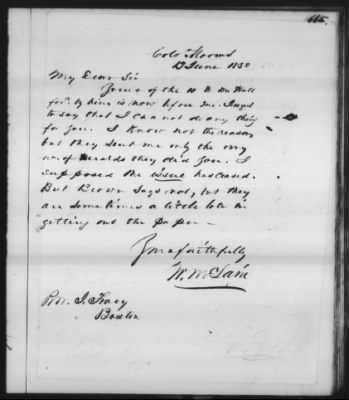 115.
Colo Rooms
13 June 1850
My Dear Sir
Yours of the 10 to Mr Hall
for by him is now before me. I regret
to say that I can not do any thing
for you. I know not the reason
but they sent me only the
no. of Heralds they did you. I
supposed the issue had ceased.
But Brown says not, but they
are sometimes a little late in
getting out the paper -
Yours faithfully
W. McLain
Rev. J. Tracy
Boston